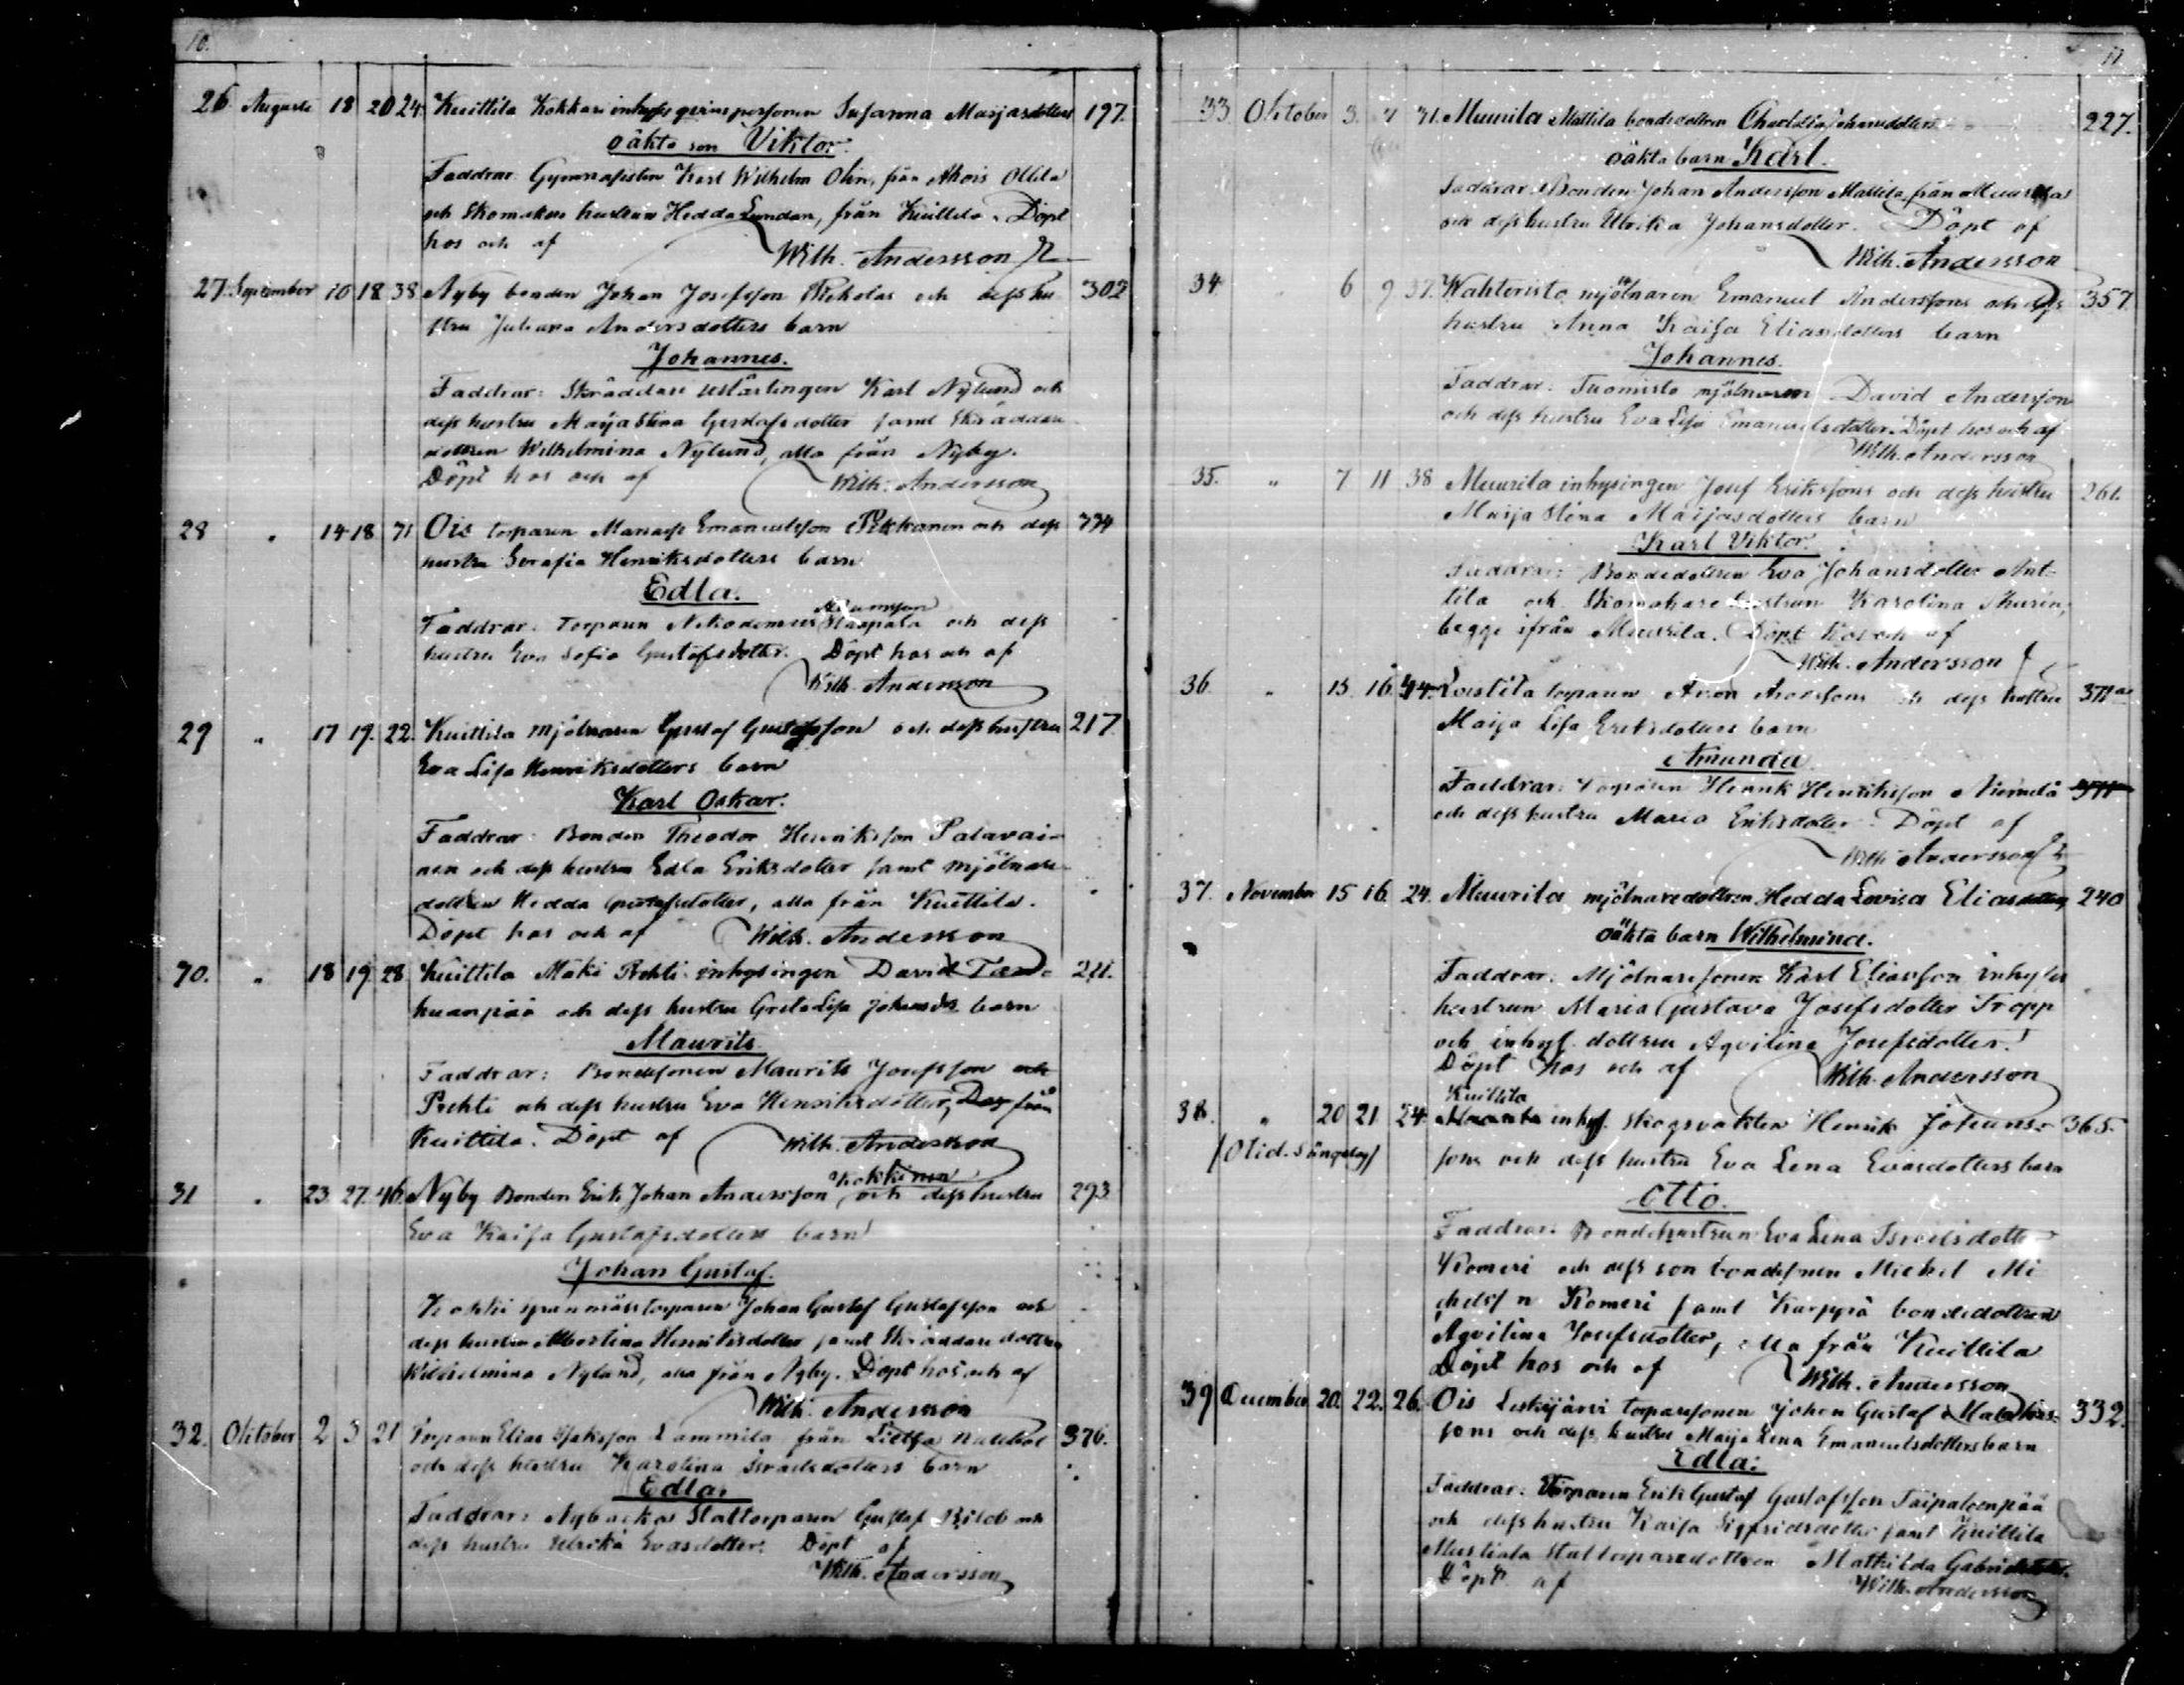 10.
26 Augusti 18 20 24. Kuittila Kokkari inhyses qvinspersonen Susanna Maijasdotters 197.
oäkta son Viktor.
Faddrar. Gymnasisten Karl Wilhelm Olin, från Ollila
och Skomakare hustrun Hedda Lundan, från Kuittila. Döpt
hos och af Wilh. Andersson
27. September 10 18 38. Nyby bonden Johan Josefsson Nickolas och dess hu 302
stru Juliana Andersdotters barn
Johannes.
Faddrar: Skräddare Karl Nylund och
dess hustru Maija Stina Gustafsdotter samt Skräddare
dottren Wilhelmina Nylund, alla från Nyby.
Döpt hos och af Wilh. Andersson
28 " 14 18 71 Ois torparen Manasse Emanuelsson Pekkanen och dess 334
hustru Serafia Henriksdotters barn
Edla.
Adamsson
Faddrar: Torparen Nikodemus och dess
hustru Eva Sofia Gustafsdotter. Döpt hos och af
Wilh. Andersson
29 " 17 19. 22. Kuittila Mjölnaren Gustaf Gustafsson och dess hustru 217
Eva Lisa Henriksdotters barn
Karl Oskar.
Faddrar: Bonden Theodor Henriksson Palavai-
nen och dess hustru Edla Eriksdotter samt mjölnare
dottren Hedda Gustafsdotter, alla från Kuittila.
Döpt hos och af Wilh. Andersson
70. " 18 19. 28 Kuittila Mäki Prehti inhysingen David 211.
huanpää och dess hustru Greta Lisa barn
Maurits
Faddrar: Bondesonen Maurits Josefsson och
Prehti och dess hustru Eva Henriksdotter, från
Kuittila. Döpt af Wilh. Andersson
Kokkinen
31 " 23. 27. 46. Nyby Bonden Erik Johan Andersson och dess hustru 293.
Eva Kaisa Gustafsdotters barn
Johan Gustaf.
Kokki torparen Johan Gustaf Gustafsson och
dess hustru Albertina Henriksdotter samt Skräddare dottren
Wilhelmina Nylund, alla från Nyby. Döpt hos och af
Wilh. Andersson
32. Oktober 2 3 21 Torparen Elias Isaksson Lammila från 376.
och dess hustru Karolina Israelsdotters barn
Edla.
Faddrar: Nybacka Stattorparen Gustaf och
dess hustru Ulrika Evasdotter. Döpt af
Wilh. Andersson
11
33 Oktober 3. 31. Muurila Mattila bondedottren Charlotta Johansdotters 227.
oäkta barn Karl.
Faddrar: Bonden Johan Andersson Mattila, från Muurila
och dess hustru Ulrika Johansdotter. Döpt af
Wilh. Andersson
34. 6 9 37. Wahteristo mjölnaren Emanuel Anderssons och dess 357.
hustru Anna Kaisa Eliasdotters barn
Johannes.
Faddrar: Tuomisto mjölnaren David Andersson
och dess hustru Eva Lisa Emanuelsdotter. Döpt hos och af
Wilh. Andersson
35. " 7 11 38 Muurila inhysingen Josef Erikssons och dess hustru 261.
Maija Stina Maijasdotters barn
Karl Viktor.
Faddrar: Bondedottren Eva Johansdotter Ant-
tila och Skomakare hustrun Karolina Thurén,
begge ifrån Muurila. Döpt hos och af
Wilh. Andersson
36. " 15. 16. 44. torparen Aron Aronssons och dess hustru
Maija Lisa Eriksdotters barn
Amanda
Faddrar: Torparen Henrik Henriksson Niemelä
och dess hustru Maria Eriksdotter. Döpt af
Wilh. Andersson
37. November 15 16. 24. Muurila mjölnaredottren Hedda Lovisa Eliasdotters 240
oäkta barn Wilhelmina.
Faddrar: Mjölnaresonen Karl Eliasson inhyses
hustrun Maria Gustava Josefsdotter Tropp
och inhys. dottren Aqvilina Josefsdotter.
Döpt hos och af Wilh. Andersson
Kuittila
38. " 20 21 24. inhys. Skogsvakten Henrik Johans- 365.
sons och dess hustru Eva Lena Evasdotters barn
Otto.
Faddrar: Bondehustrun Eva Lena Israelsdotter
Komeri och dess son bondesonen Michel Mi
chelss n Komeri samt Karppa bondedottren
Aqvilina Josefsdotter, alla från Kuittila
Döpt hos och af Wilh. Andersson
39 December 20. 22. 26. Ois Leskijärvi torparesonen Johan Gustaf 332.
sons och dess hustru Maija Lena Emanuelsdotters barn
Edla:
Faddrar: Torparen Erik Gustaf Gustafsson Taipaleenpää
och dess hustru Kaisa Sigfridsdotter samt Kuittila
Mustiala Stattorparedottren Mathilda Gabrielsdotter.
Döpt af Wilh. Andersson